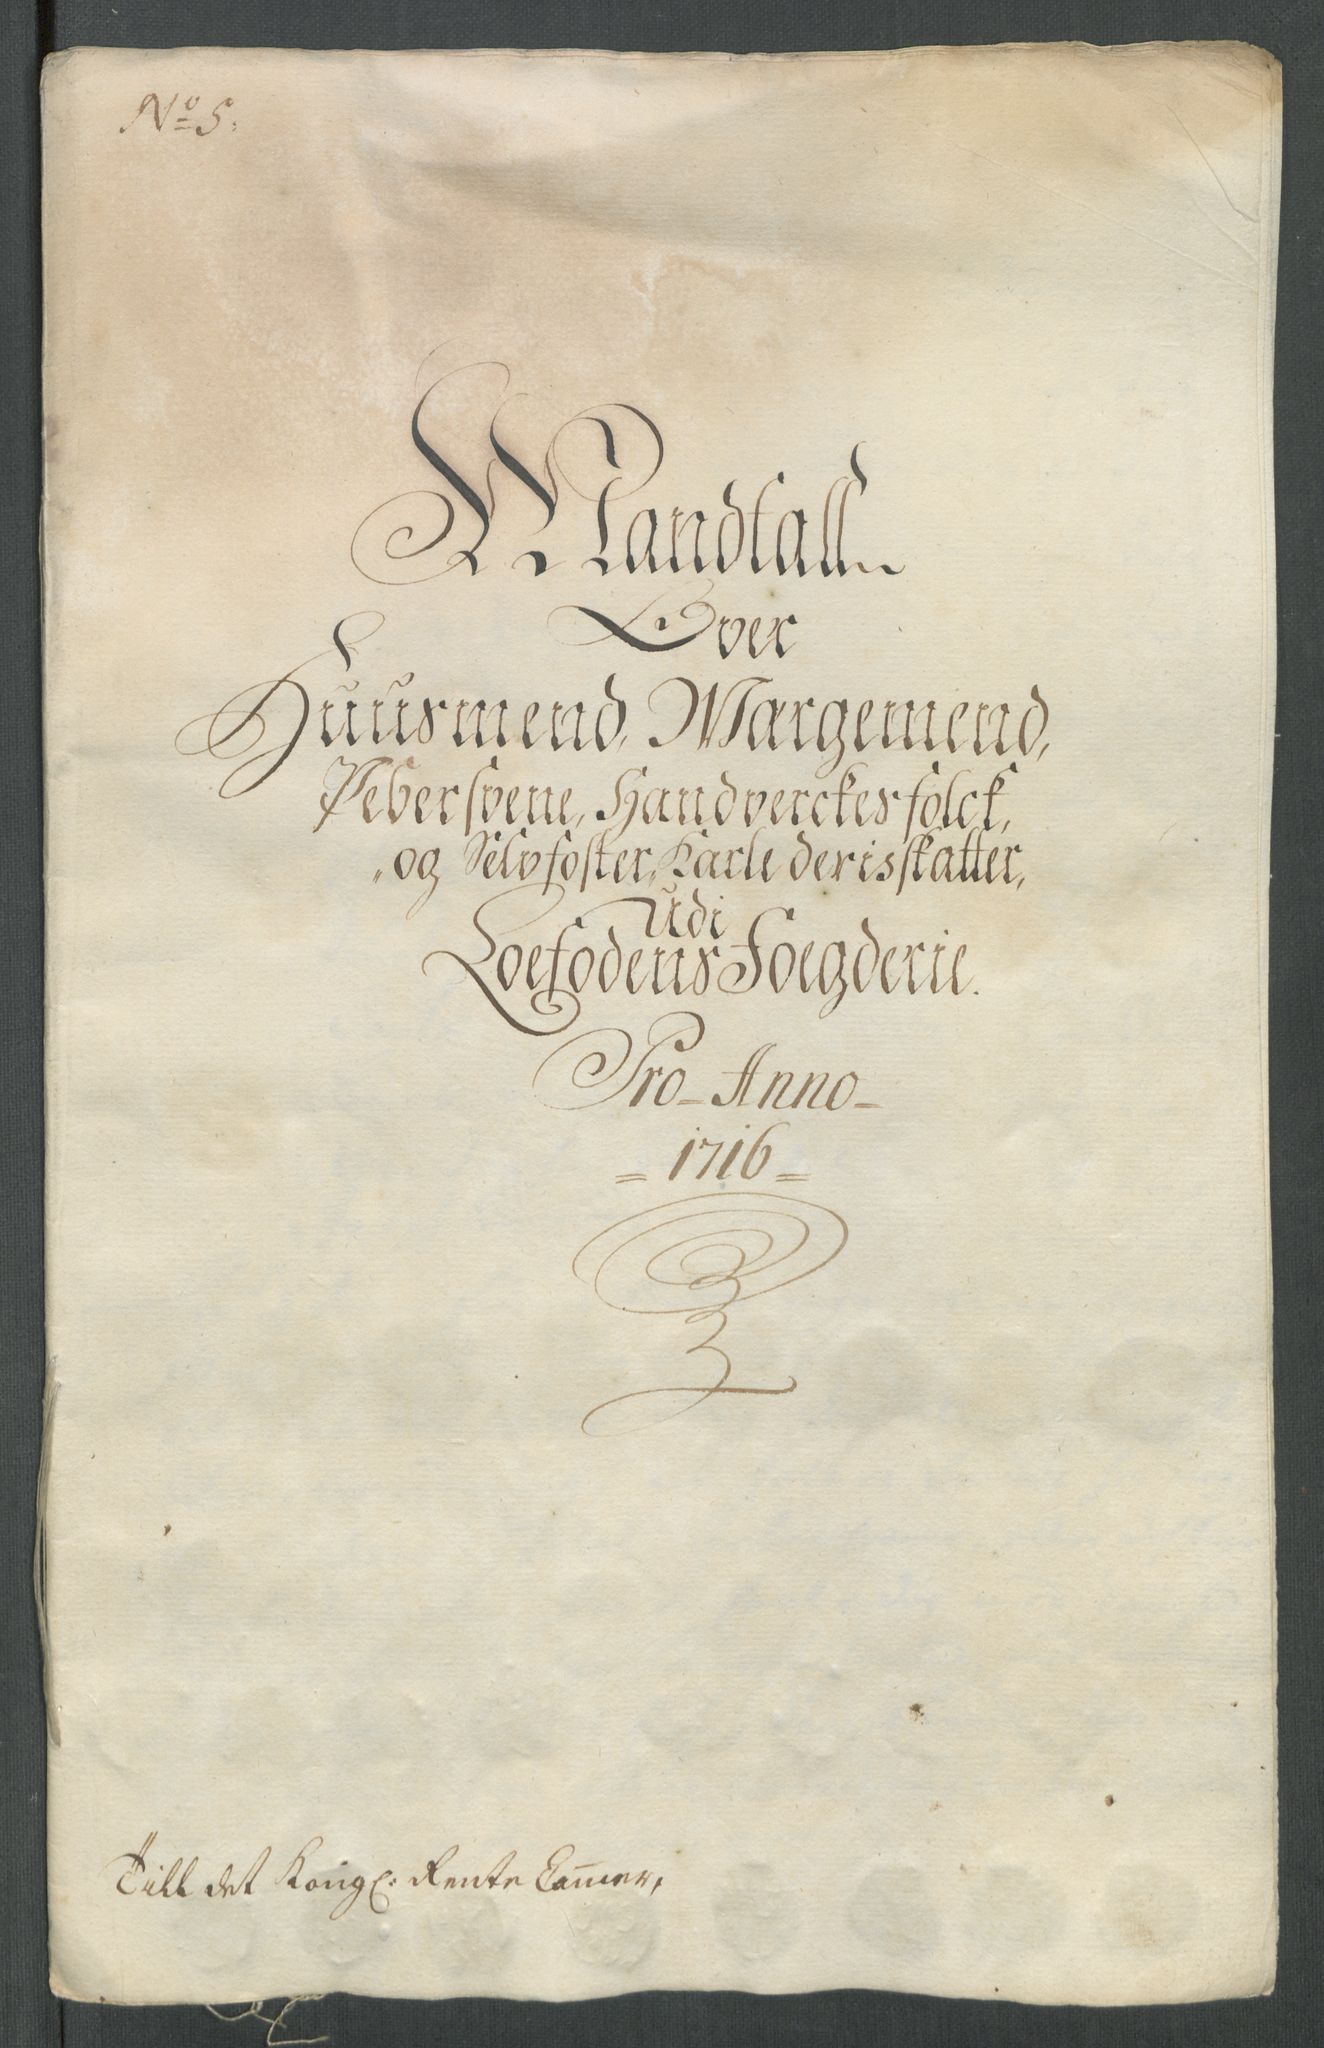 No 5.
Mandtall
Over
Huusmend, Margemend,
Pebersvene, Handverckesfolck,
og Selvfoster, Karle deris skatter,
Udi
Loefodens Foegderie.
Pro Anno
1716
Till det Kongl: Rente Cammer,